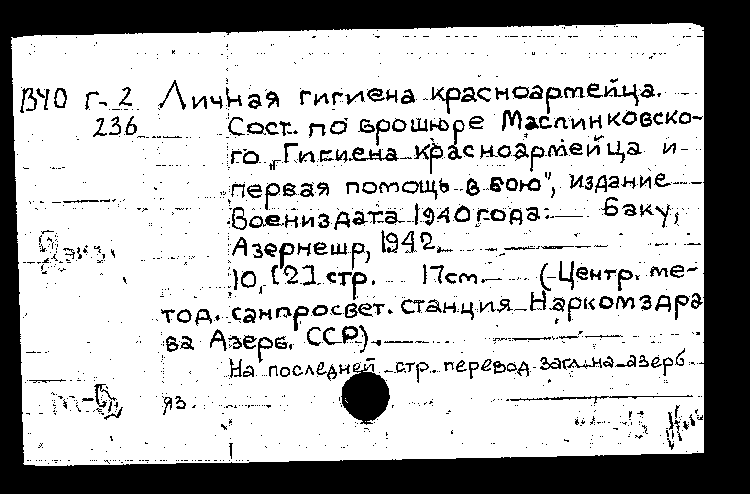 ВЧО Г-2 Личная гигиена красноармейца.
236 Сост. по брошюре Маслинковско-
го „Гигиена красноармейца и
первая помощь в бою", издание
Воениздата 1940 года. Баку,
Азернешр, 1942.
2 экз.
10, [2] стр. 17см. (Центр. ме-
тод. санпросвет. станция Наркомздра
ва Азерб. ССР).
На последней стр. перевод загл. на азерб
яз.